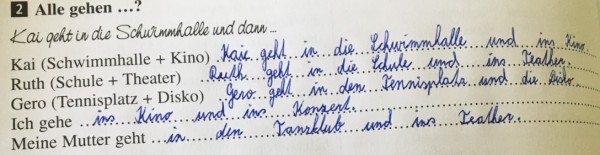 2 Alle gehen ...?
Kai geht in die Schwimmhalle und dann ...
Kai (Schwimmhalle + Kino) Kaie geht in die Schwimmhalle und ins Kino.
Ruth (Schule + Theater) Ruth geht in die Schule und ins Teather.
Gero (Tennisplatz + Disko) Gero geht in den Tennisplatz und die Disko.
Ich gehe ins Kino und ins Konzert.
Meine Mutter geht in den Tanzklub und ins Teather.